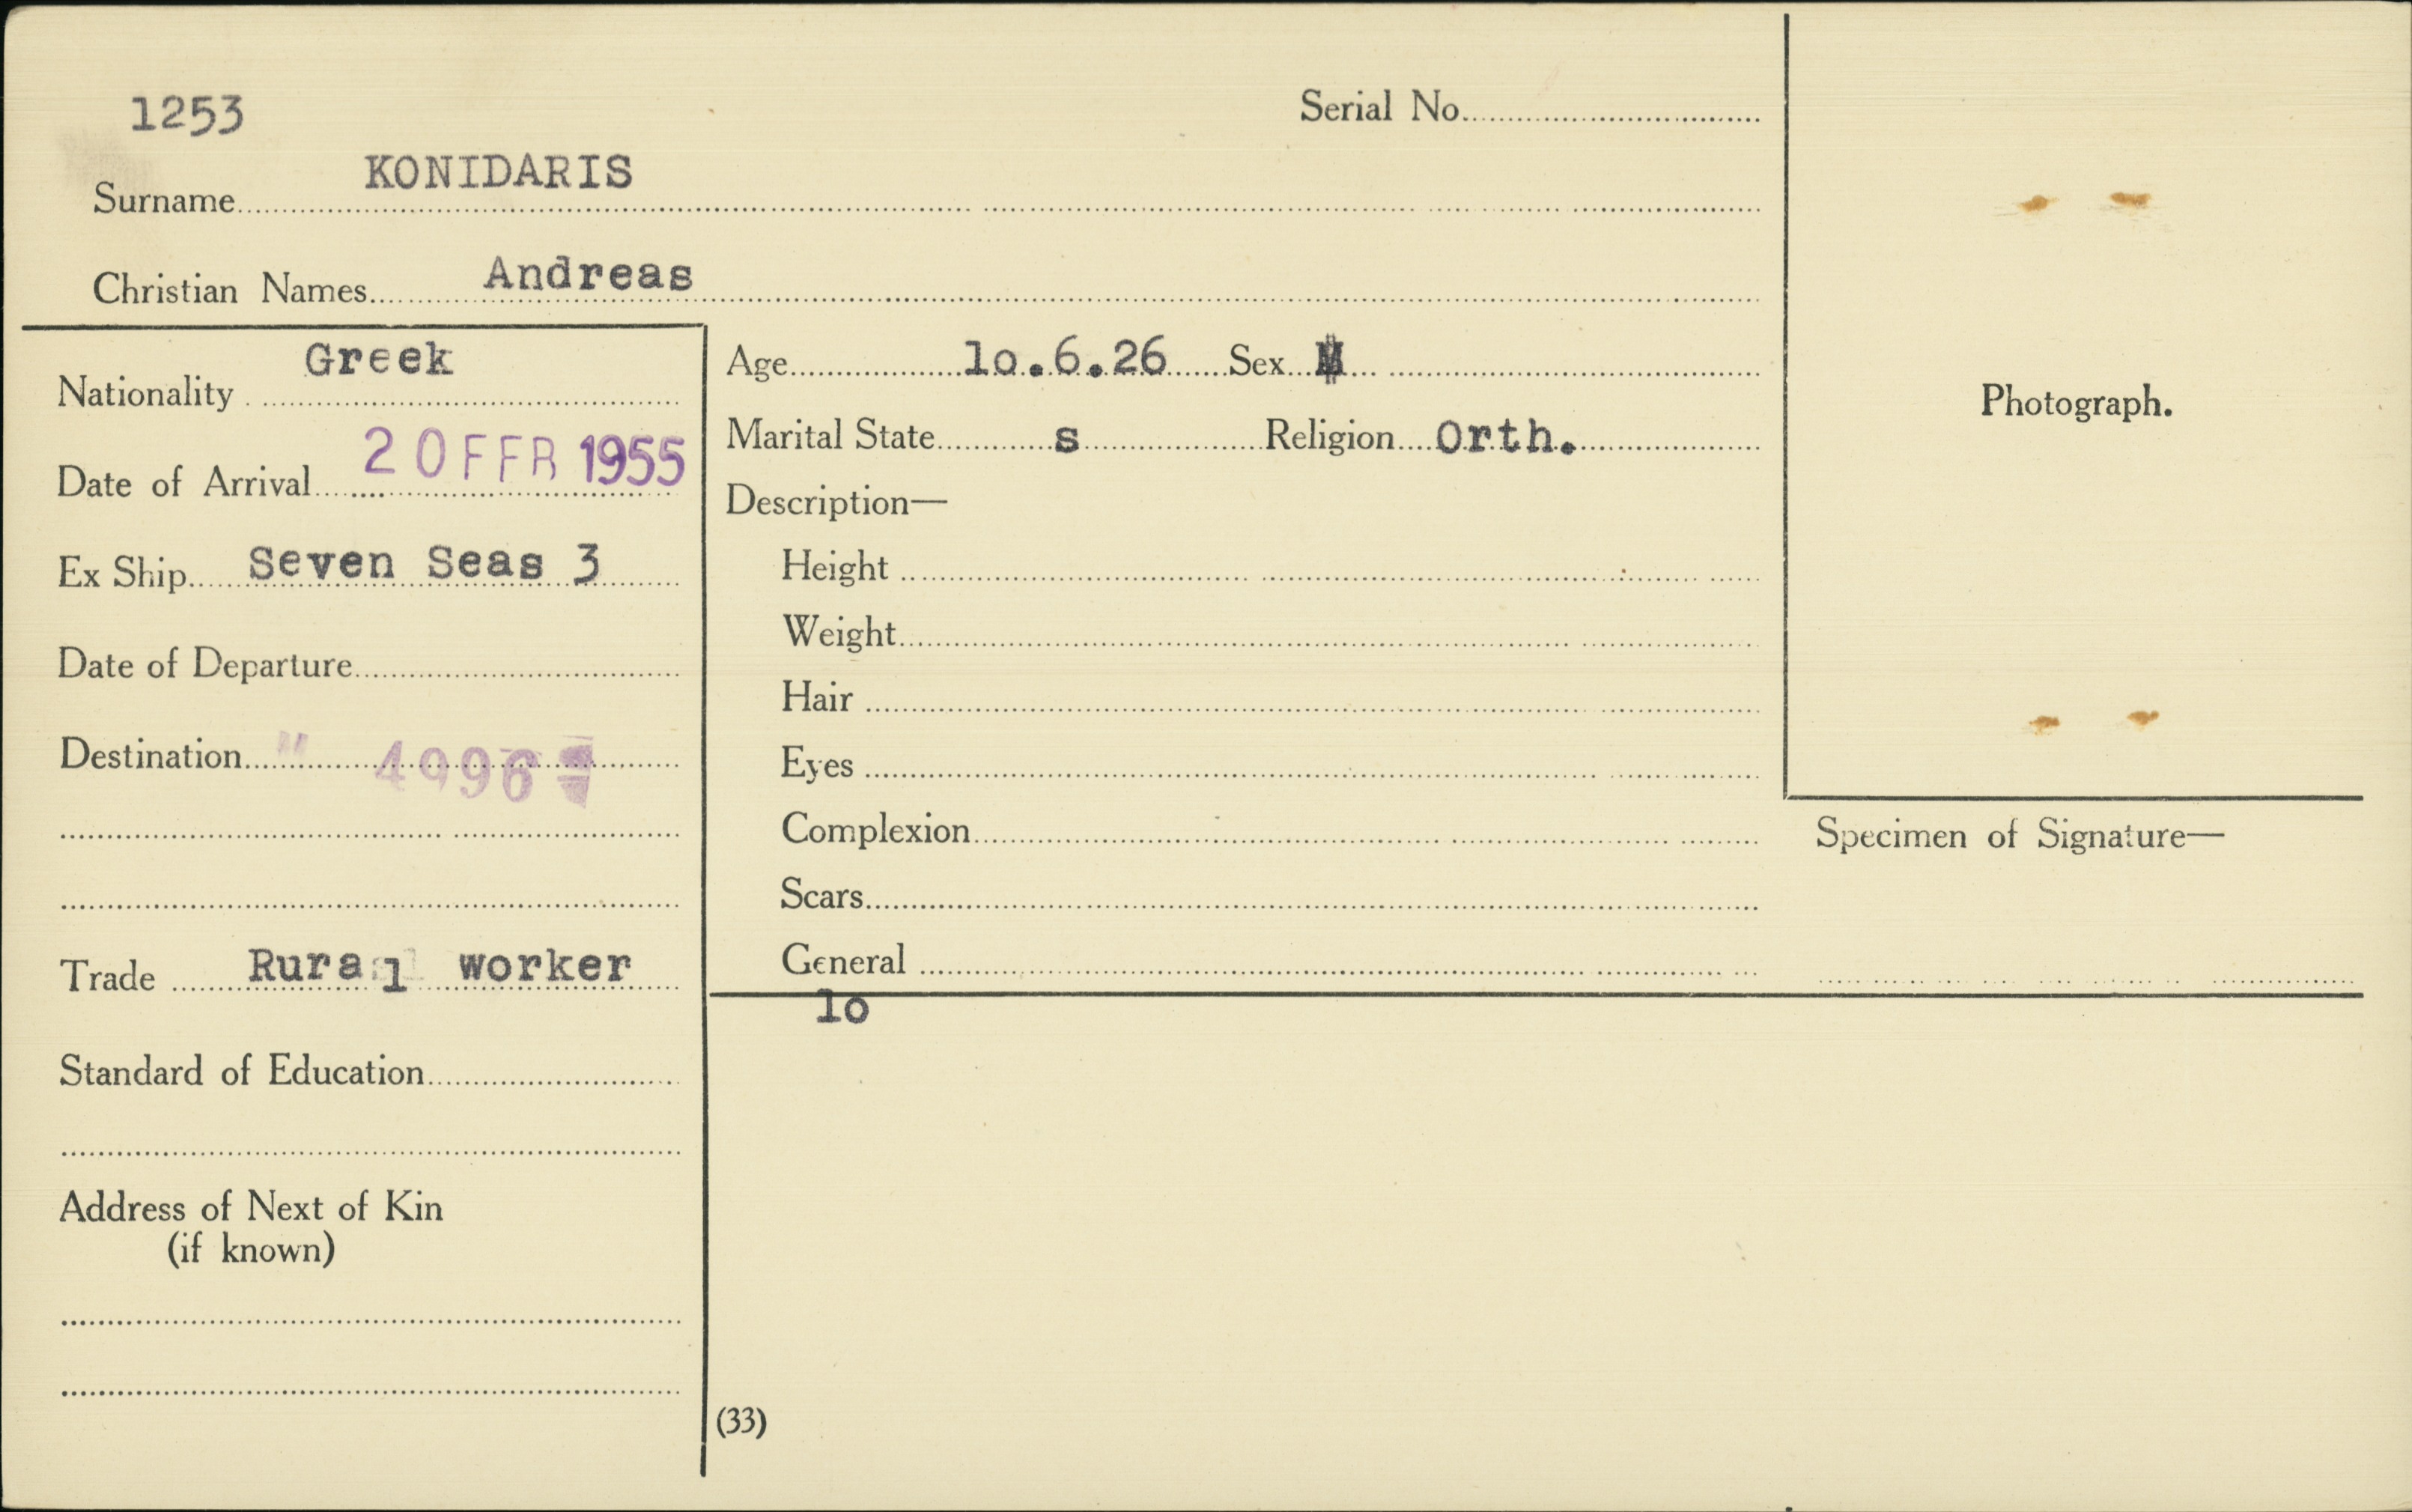 1253
Serial No.
Surname KONIDARIS
Christian Names Andreas
Nationality Greek
Date of Arrival 20 FEB 1955
Ex Ship Seven Seas 3
Date of Departure
Destination
Trade Rural worker
Standard of Education
Address of Next of Kin
(if known)
Age lo.6.26 Sex M
Marital State s Religion Orth.
Description—
Height
Weight
Hair
Eyes
Complexion
Scars
General
lo
(33)
Photograph.
Specimen of Signature—